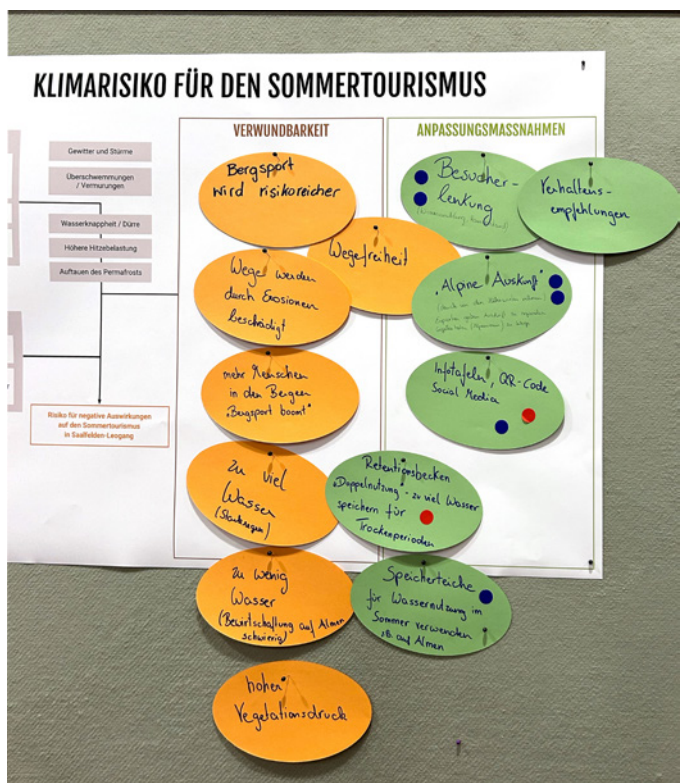 KLIMARISIKO FÜR DEN SOMMERTOURISMUS
Gewitter und Stürme
Überschwemmungen
/ Vermurungen
Wasserknappheit / Dürre
Höhere Hitzebelastung
Auftauen des Permafrosts
Risiko für negative Auswirkungen
auf den Sommertourismus
in Saalfelden-Leogang
VERWUNDBARKEIT
Bergsport
wird risikoreicher
Wegefreiheit
Wege werden
durch Erosionen
beschädigt
mehr Menschen
in den Bergen
"Bergsport boomt"
Zu viel
Wasser
(Starkregen)
Zu wenig
Wasser
(Bewirtschaftung auf Almen
schwierig)
hoher
Vegetationsdruck
ANPASSUNGSMASSNAHMEN
Besucher-
lenkung
Verhaltens-
empfehlungen
"Alpine Auskunft"
Infotafeln, QR-Code
Social Media
Retentionsbecken
"Doppelnutzung" - zu viel Wasser
speichern für
Trockenperioden
Speicherteiche
für Wassernutzung im
Sommer verwenden
z.B. auf Almen